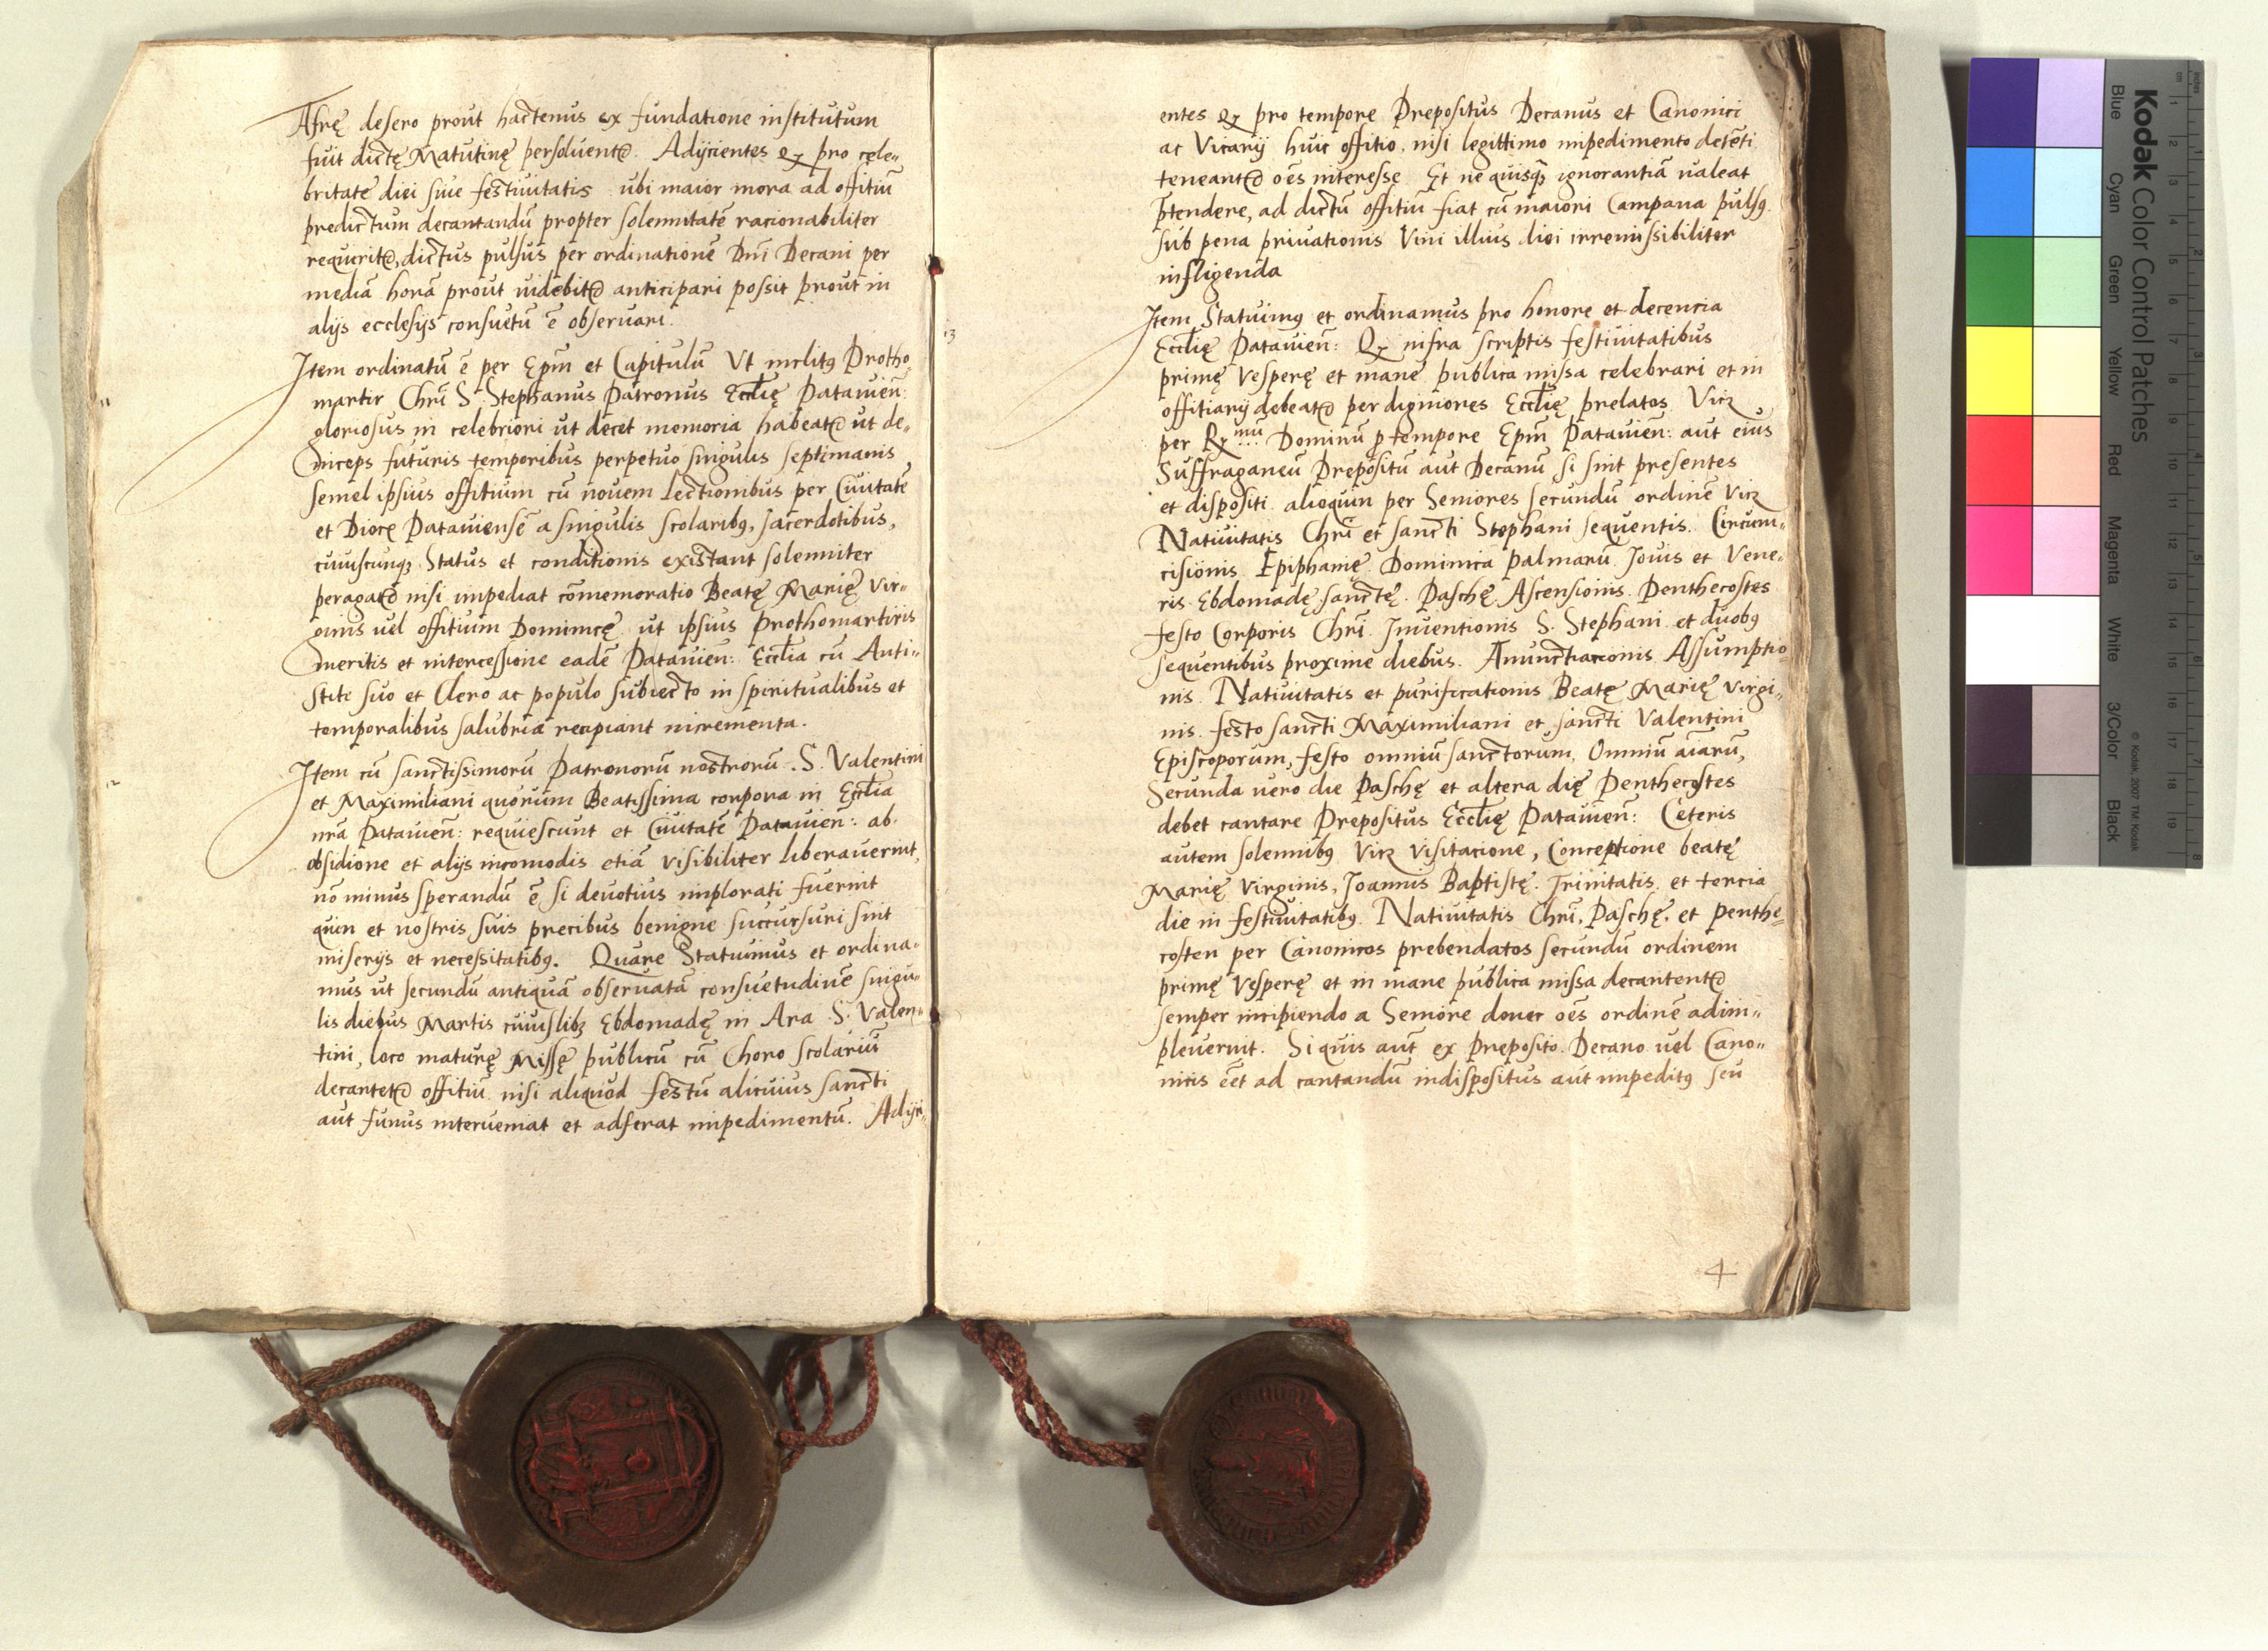 Afrę desero prout hactenus ex fundatione institutum
fuit dictę Matutinę persoluent̃. Adijcientes qƺ pro cele„
britate diei siue festiuitatis ubi maior mora ad offitiū
predictum decantandū propter solennitatē racionabiliter
requirit̃, dictus pulsus per ordinationē Dnī Decani per
mediā horā prout uidebit̃ anticipari possit prout in
alijs ecclesijs consuetū ē obseruari.
11
Item ordinatū ē per Epm̄ et Capitulū Vt inclitꝰ Protho„
martir Chrī S. Stephanus Patronus Eccl̄ię Patauień
gloriosus in celebriori ut decet memoria habeat̃ ut de„
inceps futuris temporibus perpetuo singulis septimanis
semel ipsius offitium cū nouem Lectionibus per Ciuitatē
et Dioc̄ Patauiensē a singulis scolaribꝰ, sacerdotibus,
cuiuscunqꝫ Status et conditionis existant solenniter
peragat̃ nisi impediat cōmemoratio Beatę Marię Vir„
ginis uel offitium Dominicę ut ipsius Prothomartiris
meritis et intercessione eadē Patauień: Eccl̄ia cū Anti„
stite suo et Clero ac populo subiecto in spiritualibus et
temporalibus salubria recipiant incrementa.
12
Item cū sanctissimorū Patronorū nostrorū . S. Valentini
et Maximiliani quorum Beatissima corpora in Eccl̄ia
nrā Patauień: requiescunt et Ciuitatē Patauień: ab
obsidione et alijs incomodis etiā visibiliter liberauerint,
nō minus sperandū ē si deuotius implorati fuerint
quin et nostris suis precibus benigne succursuri sint
miserijs et necessitatibꝰ. Quare Statuimus et ordina„
mus ut secundū antiquā obseruatā consuetudinē singu„
lis diebus Martis cuiuslibꝫ Ebdomadę in Ara S. Valen„
tini, loco maturę Missę publicū cū Choro scolariū
decantet̃ offitiū nisi aliquod festū alicuius sancti
aut funus interueniat et adferat impedimentū. Adijci„
entes qƺ pro tempore Prepositus Decanus et Canonici
ac Vicarij huic offitio, nisi legittimo impedimento detēti
teneant̃ oēs interesse Et ne quisqꝫ ignorantiā ualeat
p̄tendere, ad dictū offitiū fiat cū maiori Campana pulsꝰ
sub pena priuationis Vini illius diei irremissibiliter
infligenda
13
Item Statuimꝰ et ordinamus pro honore et decencia
Eccl̄ię Patauień: Qƺ infra scriptis festiuitatibus
primę Vesperę et mane publica missa celebrari et in
offitiarij debeat̃ per digniores Eccl̄ię prelatos Vicꝫ
per Rƺ mū Dominū p tempore Epm̄ Patauień: aut eius
Suffraganeū Prepositū aut Decanū si sint presentes
et dispositi alioquin per Seniores secundū ordinē Vicꝫ
Natiuitatis Chrī et sancti Stephani sequentis. Circum„
cisionis Epiphanię Dominica palmarū Iouis et Vene„
ris Ebdomadę sanctę. Paschę Ascensionis Penthecostes
festo Corporis Chrī Inuentionis S. Stephani et duobꝰ
sequentibus proxime diebus. Anunctiacionis Assumptio
nis Natiuitatis et purificationis Beatę Marię Virgi„
nis festo sancti Maximiliani et sancti Valentini
Episcoporum, festo omniū sanctorum, Omniū aīarū,
Secunda uero die Paschę et altera dię Penthecostes
debet cantare Prepositus Eccl̄ię Patauień: Ceteris
autem solennibꝰ Vicꝫ Visitacione, Conceptione beatę
Marię Virginis, Joannis Baptistę. Trinitatis et tercia
die in festiuitatibꝰ Natiuitatis Chrī, Paschę, et Penthe„
costen per Canonicos prebendatos secundū ordinem
primę Vesperę et in mane publica missa decantent̃
semper incipiendo a Seniore donec oēs ordinē adim„
pleuerint. Si quis aut̄ ex preposito. Decano uel Cano„
nicis eēt ad cantandū indispositus aut impeditꝰ seu
4
Kodak Color Control Patches
Blue Cyan Green Yellow Red Magenta White 3/Color Black
© Kodak, 2007 TM: Kodak